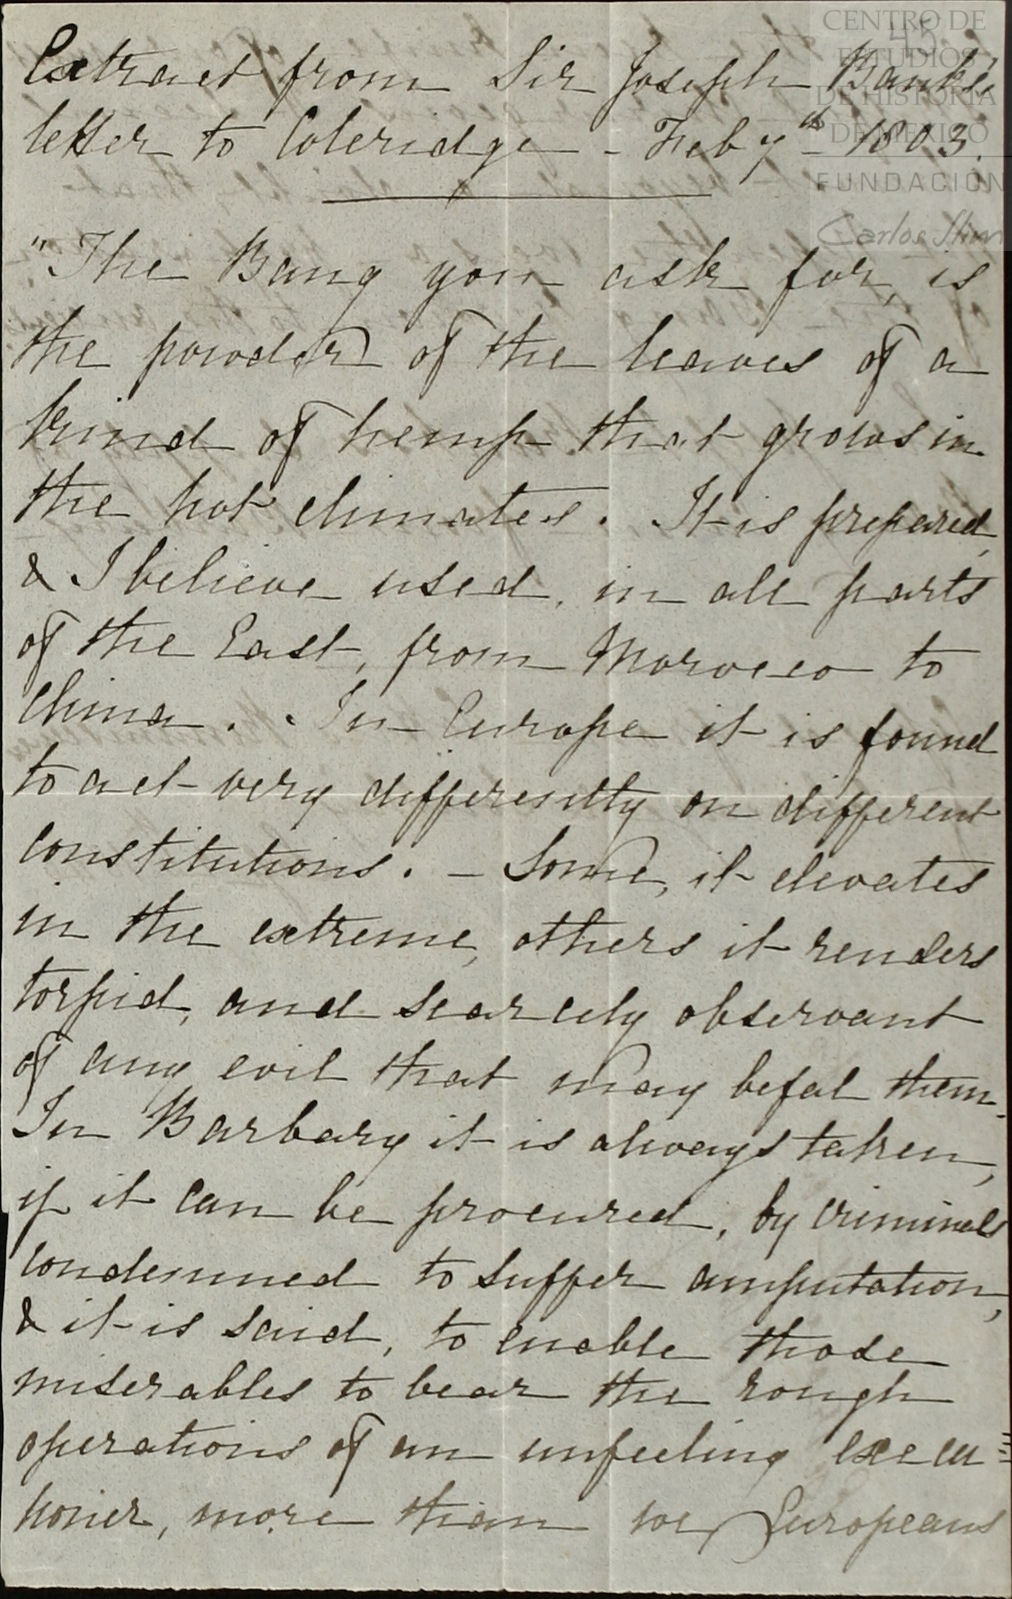 CENTRO DE
ESTUDIOS
DE HISTORIA
DE MEXICO
FUNDACIÓN
Carlos Slim
Extract from Sir Joseph Banks's
letter to Coleridge - Feby 7th 1803.
"The Bang you ask for, is
the powder of the leaves of a
kind of hemp that grows in
the hot climates. It is prepared,
& I believe used, in all parts
of the East, from Morocco to
China. In Europe it is found
to act very differently on different
constitutions. - Some, it elevates
in the extreme, others it renders
torpid, and scarcely observant
of any evil that may befal them.
In Barbary it is always taken,
if it can be procured, by criminals
condemned to suffer amputation,
& it is said, to enable those
miserables to bear the rough
operations of an unfeeling execu=
tioner, more than we Europeans